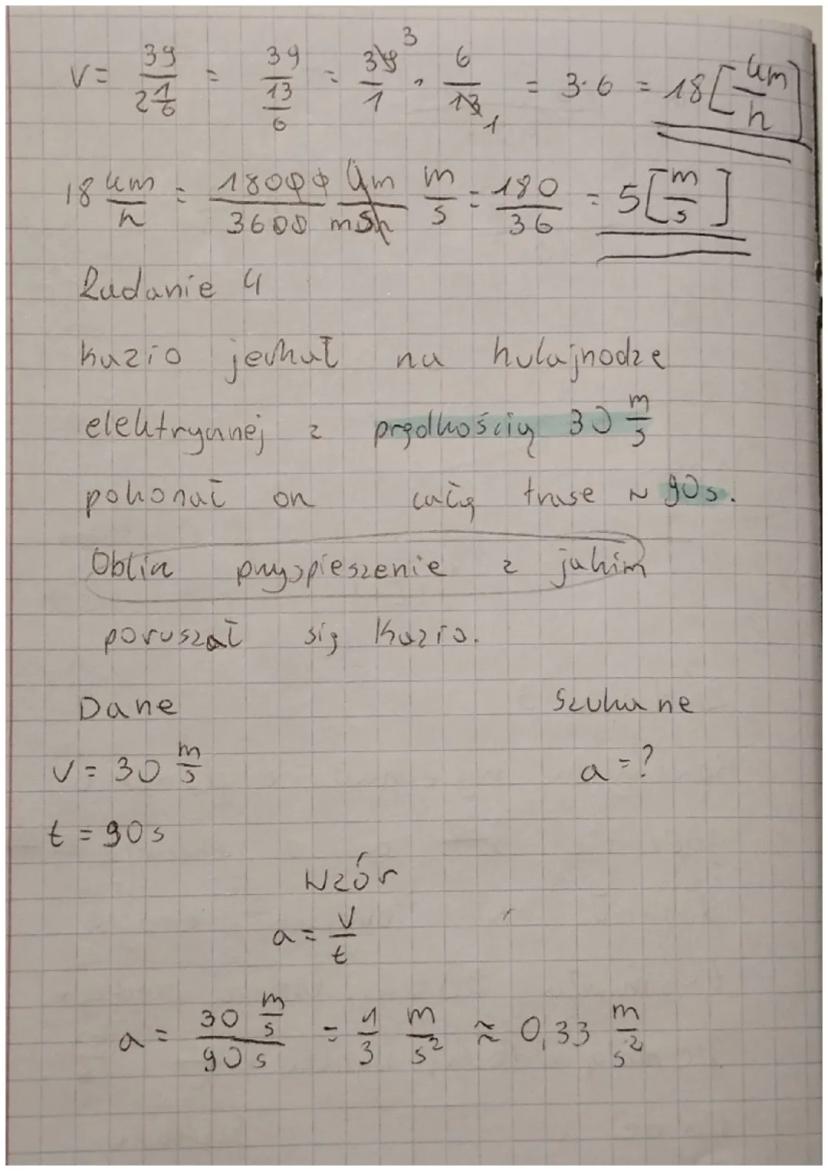 v = 39/2 1/6 = 39/(13/6) = 39/1 3 · 6/13 1 = 3·6 = 18 [km/h]
18 km/h = 18000/3600 m/s = 180/36 = 5 [m/s]
Zadanie 4
Kazio jechał na hulajnodze
elektrycznej z prędkością 30 m/s
pokonał on całą trase w 90s.
Oblicz przyspieszenie z jakim
poruszał się Kazio.
Dane Szukane
v = 30 m/s a = ?
t = 90s
Wzór
a = v/t
a = 30 m/s / 90 s = 1/3 m/s² ≈ 0,33 m/s²